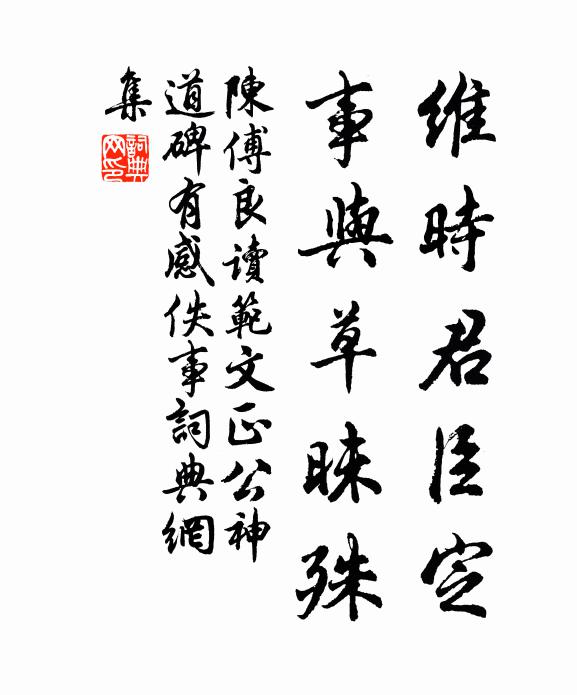 維時君臣定
事與草昧殊
陳傅良讀範文正公神
道碑有感佚事詞典網
集
詞典網印